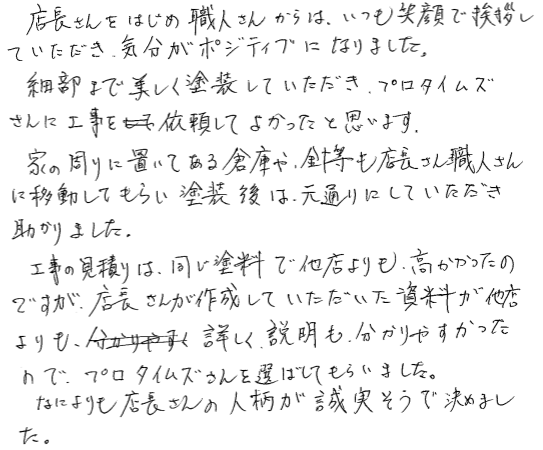 店長さんをはじめ職人さんからは、いつも笑顔で挨拶し
ていただき、気分がポジティブになりました。
細部まで美しく塗装していただき、プロタイムズ
さんに工事を依頼してよかったと思います。
家の周りに置いてある倉庫や、鉢等も店長さん職人さん
に移動してもらい塗装後は、元通りにしていただき
助かりました。
工事の見積りは、同じ塗料で他店よりも、高かかったの
ですが、店長さんが作成していただいた資料が他店
よりも、分かりやすく詳しく、説明も、分かりやすかった
ので、プロタイムズさんを選ばしてもらいました。
なによりも店長さんの人柄が誠実そうで決めまし
た。